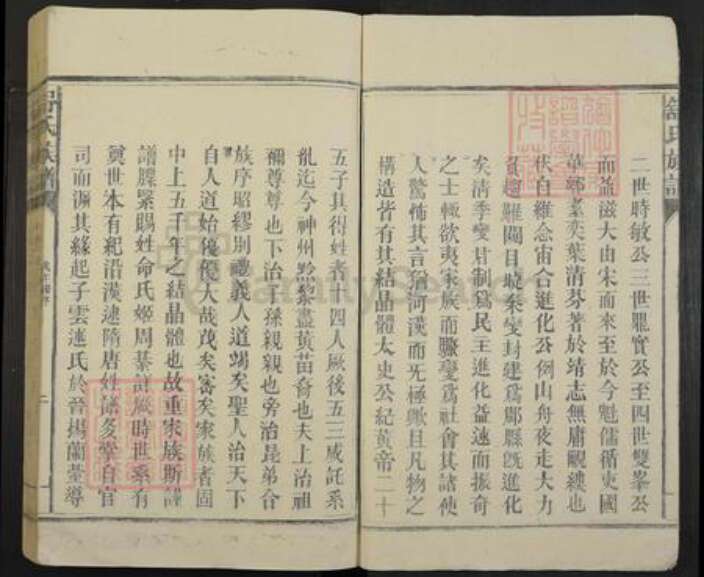 舒氏族譜
二世時敏公三世聖實公至四世雙峯公
而益滋大由宋而來至於今魁儒循吏國
華鄉素奕葉清芬著於靖志無庸覼縷也
伏自維念宙合進化公例山舟夜走大力
負趨難闚目域棊變封建爲郡縣旣進化
矣清季變片制爲民主進化益速而振奇
之士輒欲夷家族而驟變爲社會其諸使
人驚怖其言猶河漢而无極歟且凡物之
構造皆有其結晶體太史公紀黃帝二十
五子其得姓者十四人厥後五三咸託系
亂迄今神州黔黎盡黃苗裔也夫上治祖
禰尊尊也下治子孫親親也旁治昆弟合
族序昭繆別禮義人道竭矣聖人治天下
自人道始優優大哉茂矣審矣家族者固
中上五千年之結晶體也故重家族斯
譜牒繄賜姓命氏姬周綦 厥時世系有
奠世本有紀沿漢逮隋唐姓 自官
司而 其緣起子雲述氏於晉楊蘭臺導
氏族譜
二